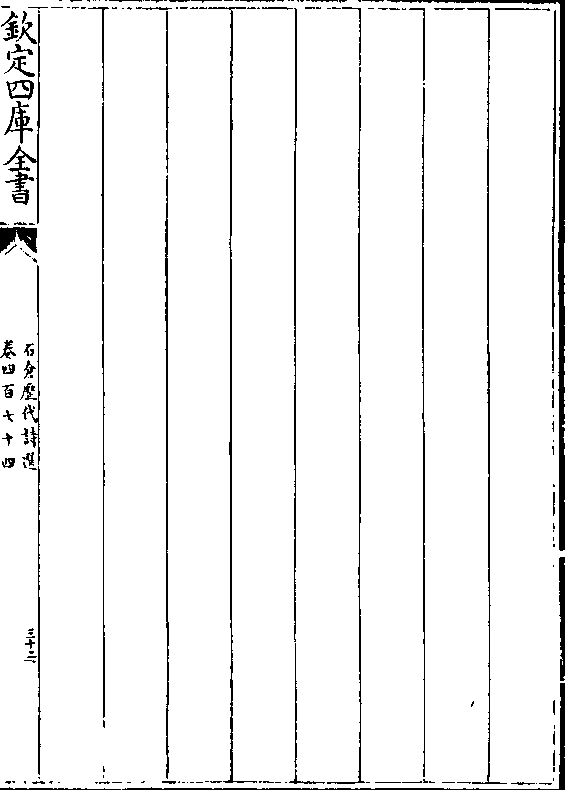 欽定四庫全書
石倉歷代詩選
卷四百七十四
三十二